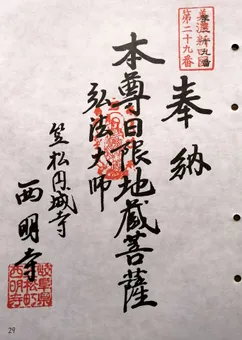 美濃新四国
第二十九番
奉納
本尊日限地蔵菩薩
弘法大師
笠松円城寺
西明寺
岐阜県
笠松町
西明寺
29